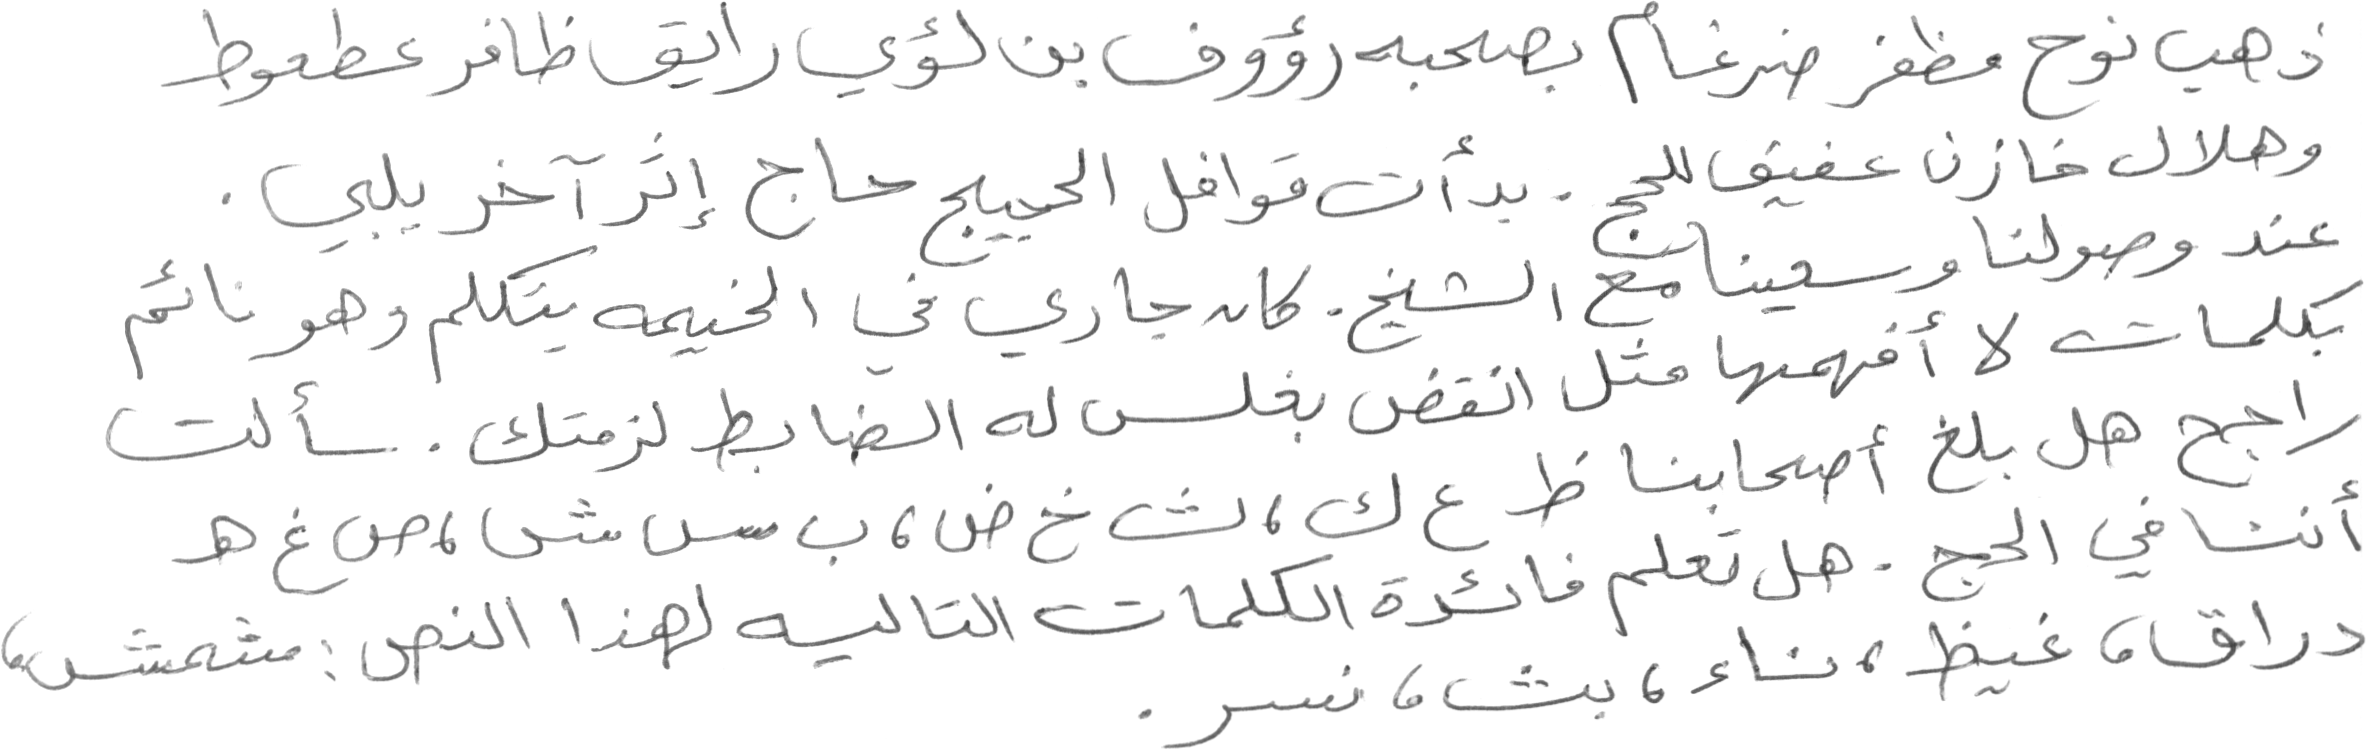 ذهب نوح مظفر ضرغام بصحبه رؤوف بن لؤي رايق ظافر عطعوط
وهلال خازن عفيف للحج . بدأت قوافل الحجيج حاج إثر آخر يلبي .
عند وصولنا وسعينا مع الشيخ . كان جاري في الخيمه يتكلم وهو نائم
بكلمات لا أفهمها مثل انقض بغلس له الضابط لزمتك . سألت
راجح هل بلغ أصحابنا ظ ع ك ، ث خ ض ، ب س ش ، ص غ ه
أنت في الحج . هل تعلم فائدة الكلمات التاليه لهذا النص : مشمش ،
دراق ، غيظ ، ناء ، بث ، نسر .